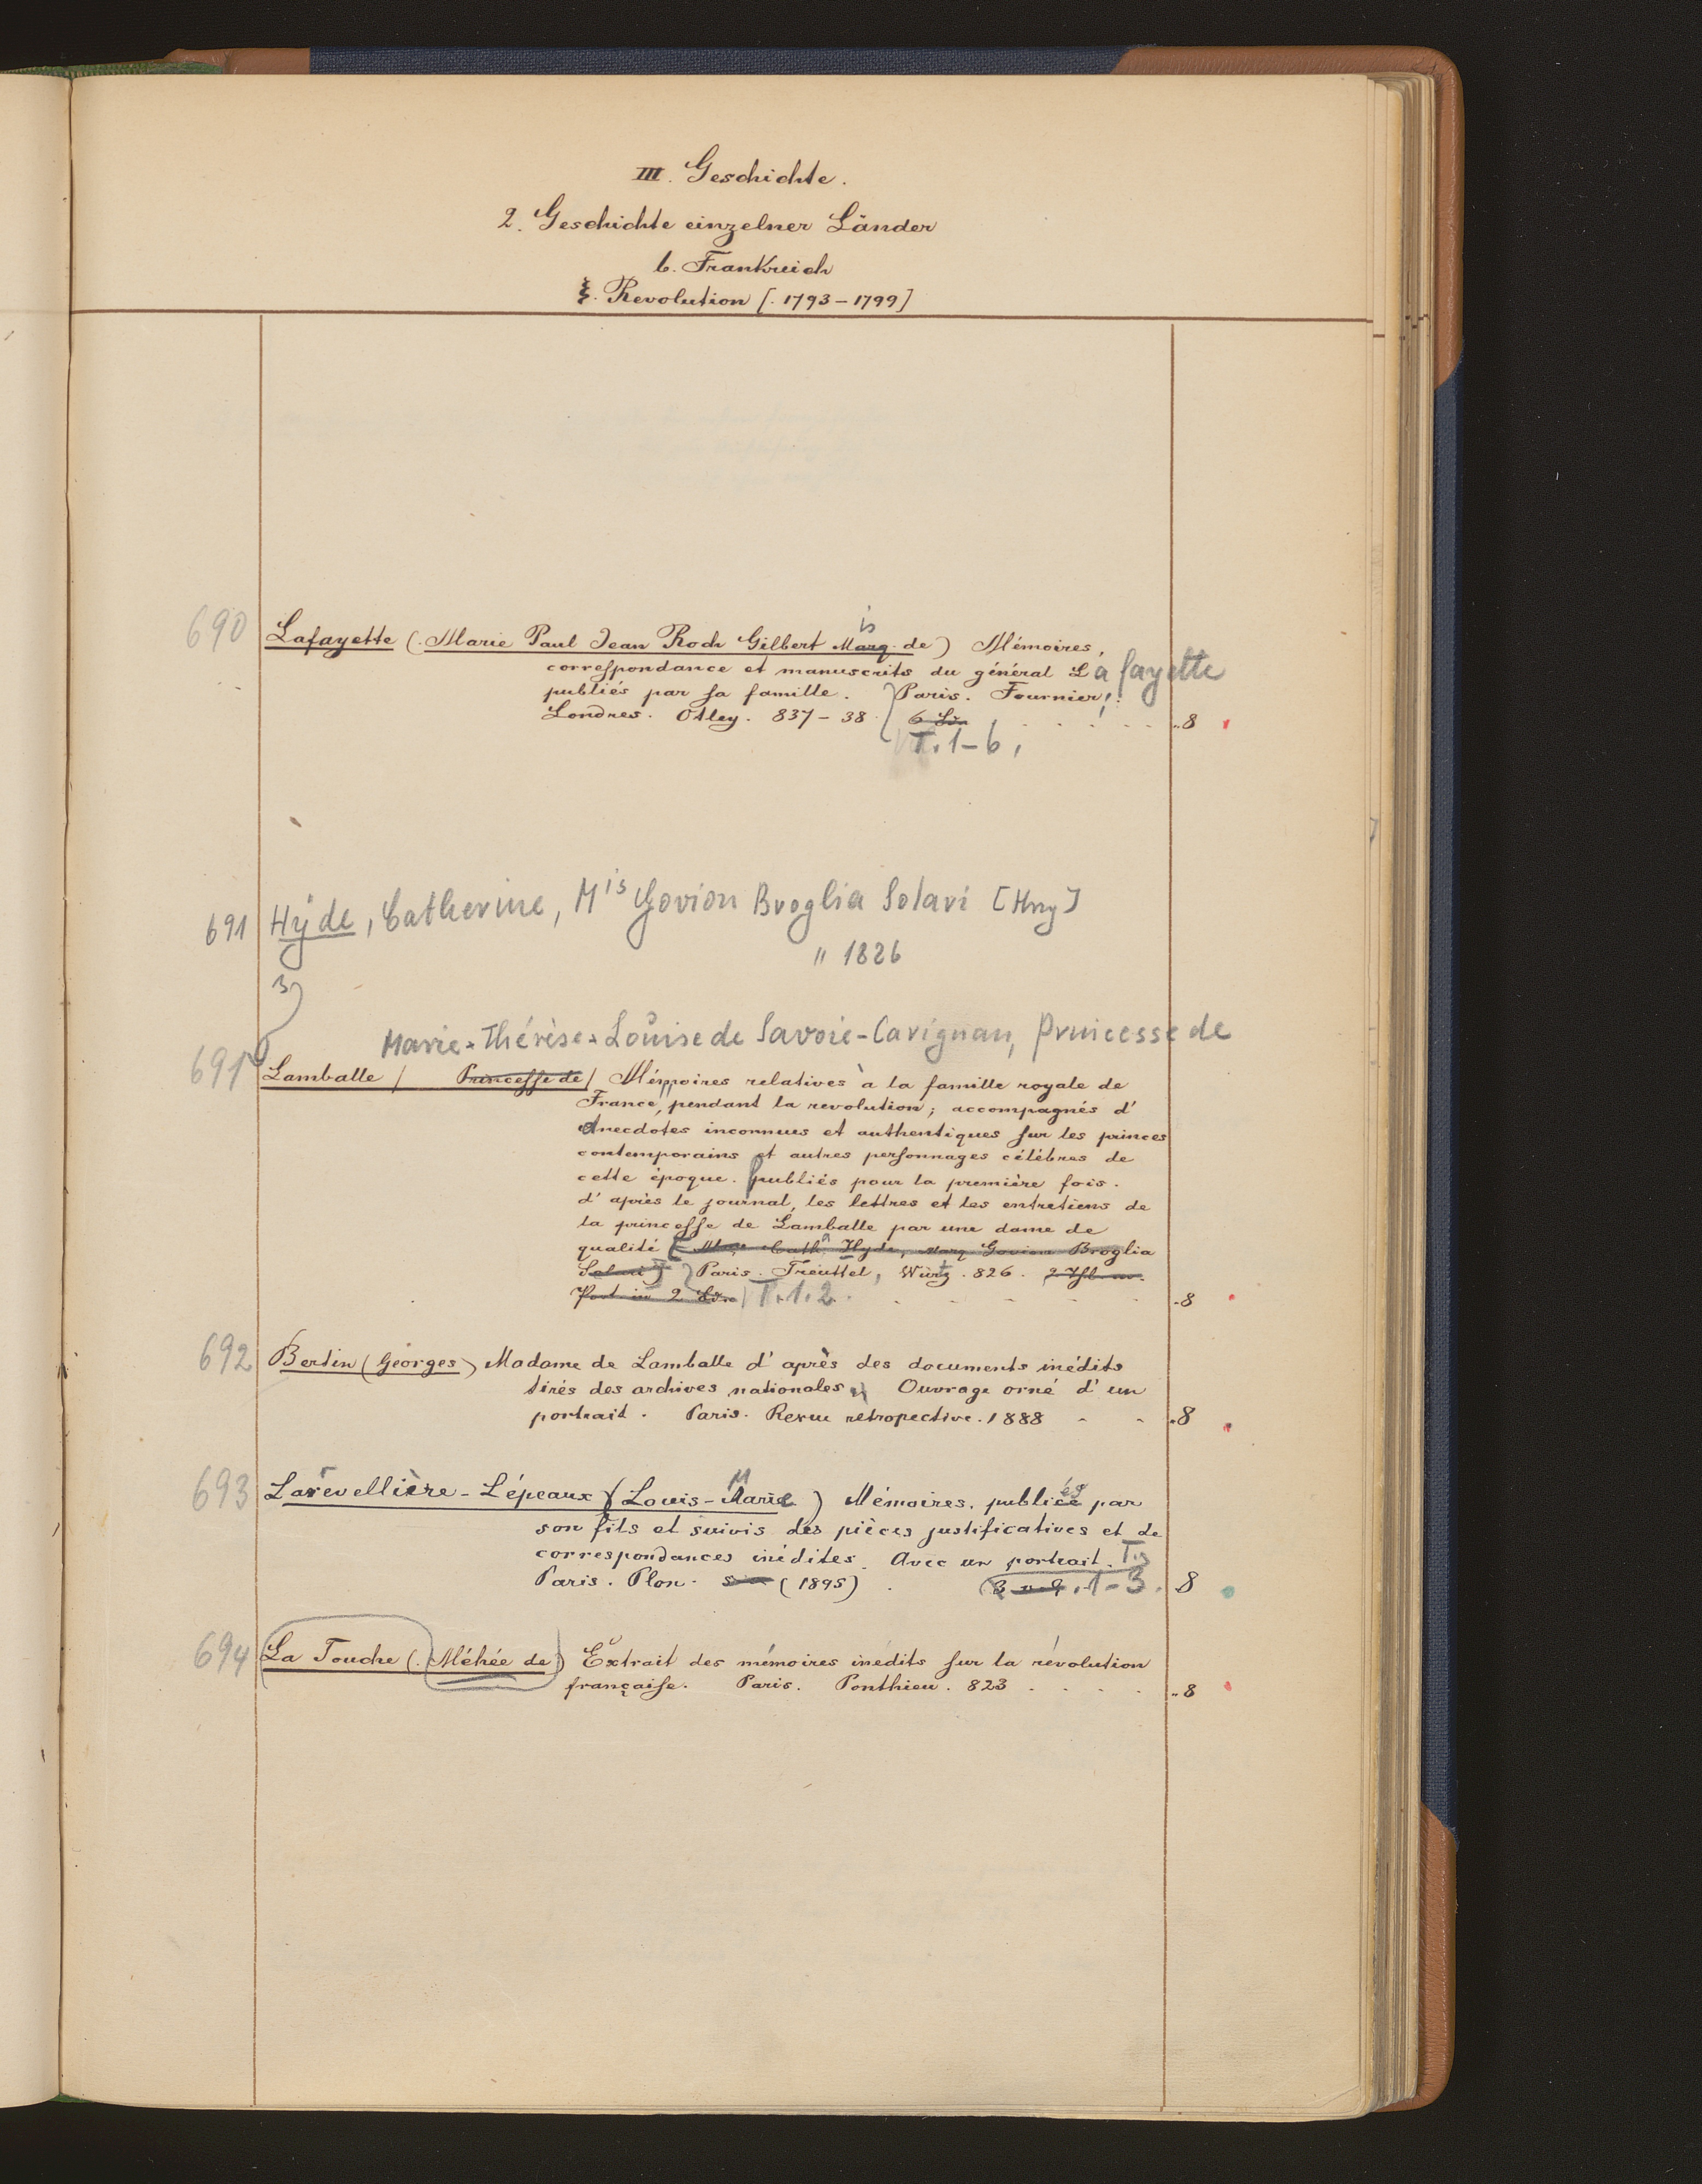 III. Geschichte.
2. Geschichte einzelner Länder
b. Frankreich
ξ. Revolution [. 1793 – 1799]
is
690 Lafayette (. Marie Paul Jean Roch Gilbert Marq. de) Mémoires,
correspondance et manuscrits du général La fayette
publiés par sa famille. Paris. Fournier,
Londres. Otley. 837 – 38. 6 Bde . . . . .. 8
T. 1–6,
691 Hyde, Catherine, Mis Govion Broglia Solari [Hrsg]
" 1826
Marie-Thérèse-Louise de Savoie-Carignan, Princesse de
691a Lamballe / Princesse de / Mémoires relatives à la famille royale de
France, pendant la revolution; accompagnés d'
anecdotes inconnues et authentiques sur les princes
contemporains et autres personnages célèbres de
cette époque. publiés pour la première fois.
d'après le journal, les lettres et les entretiens de
la princesse de Lamballe par une dame de
qualité [Cath. Hyde, Marq Govion Broglia
Solari] Paris. Treuttel, Würtz. 826.
Port in 2 Bde T. 1. 2. . . . . . . 8
692 Bertin (Georges) Madame de Lamballe d'après des documents inédits
tirés des archives nationales. Ouvrage orné d'un
portrait. Paris. Revue retropective. 1888 . . . 8
693 Larévellière-Lépeaux (Louis-Marie) Mémoires. publiés par
son fils et suivis des pièces justificatives et de
correspondances inédites. Avec un portrait. T.
Paris. Plon. (1895) . 1–3. 8
694 La Touche (. Méhée de) Extrait des mémoires inédits sur la révolution
française. Paris. Ponthieu. 823 . . . . .. 8